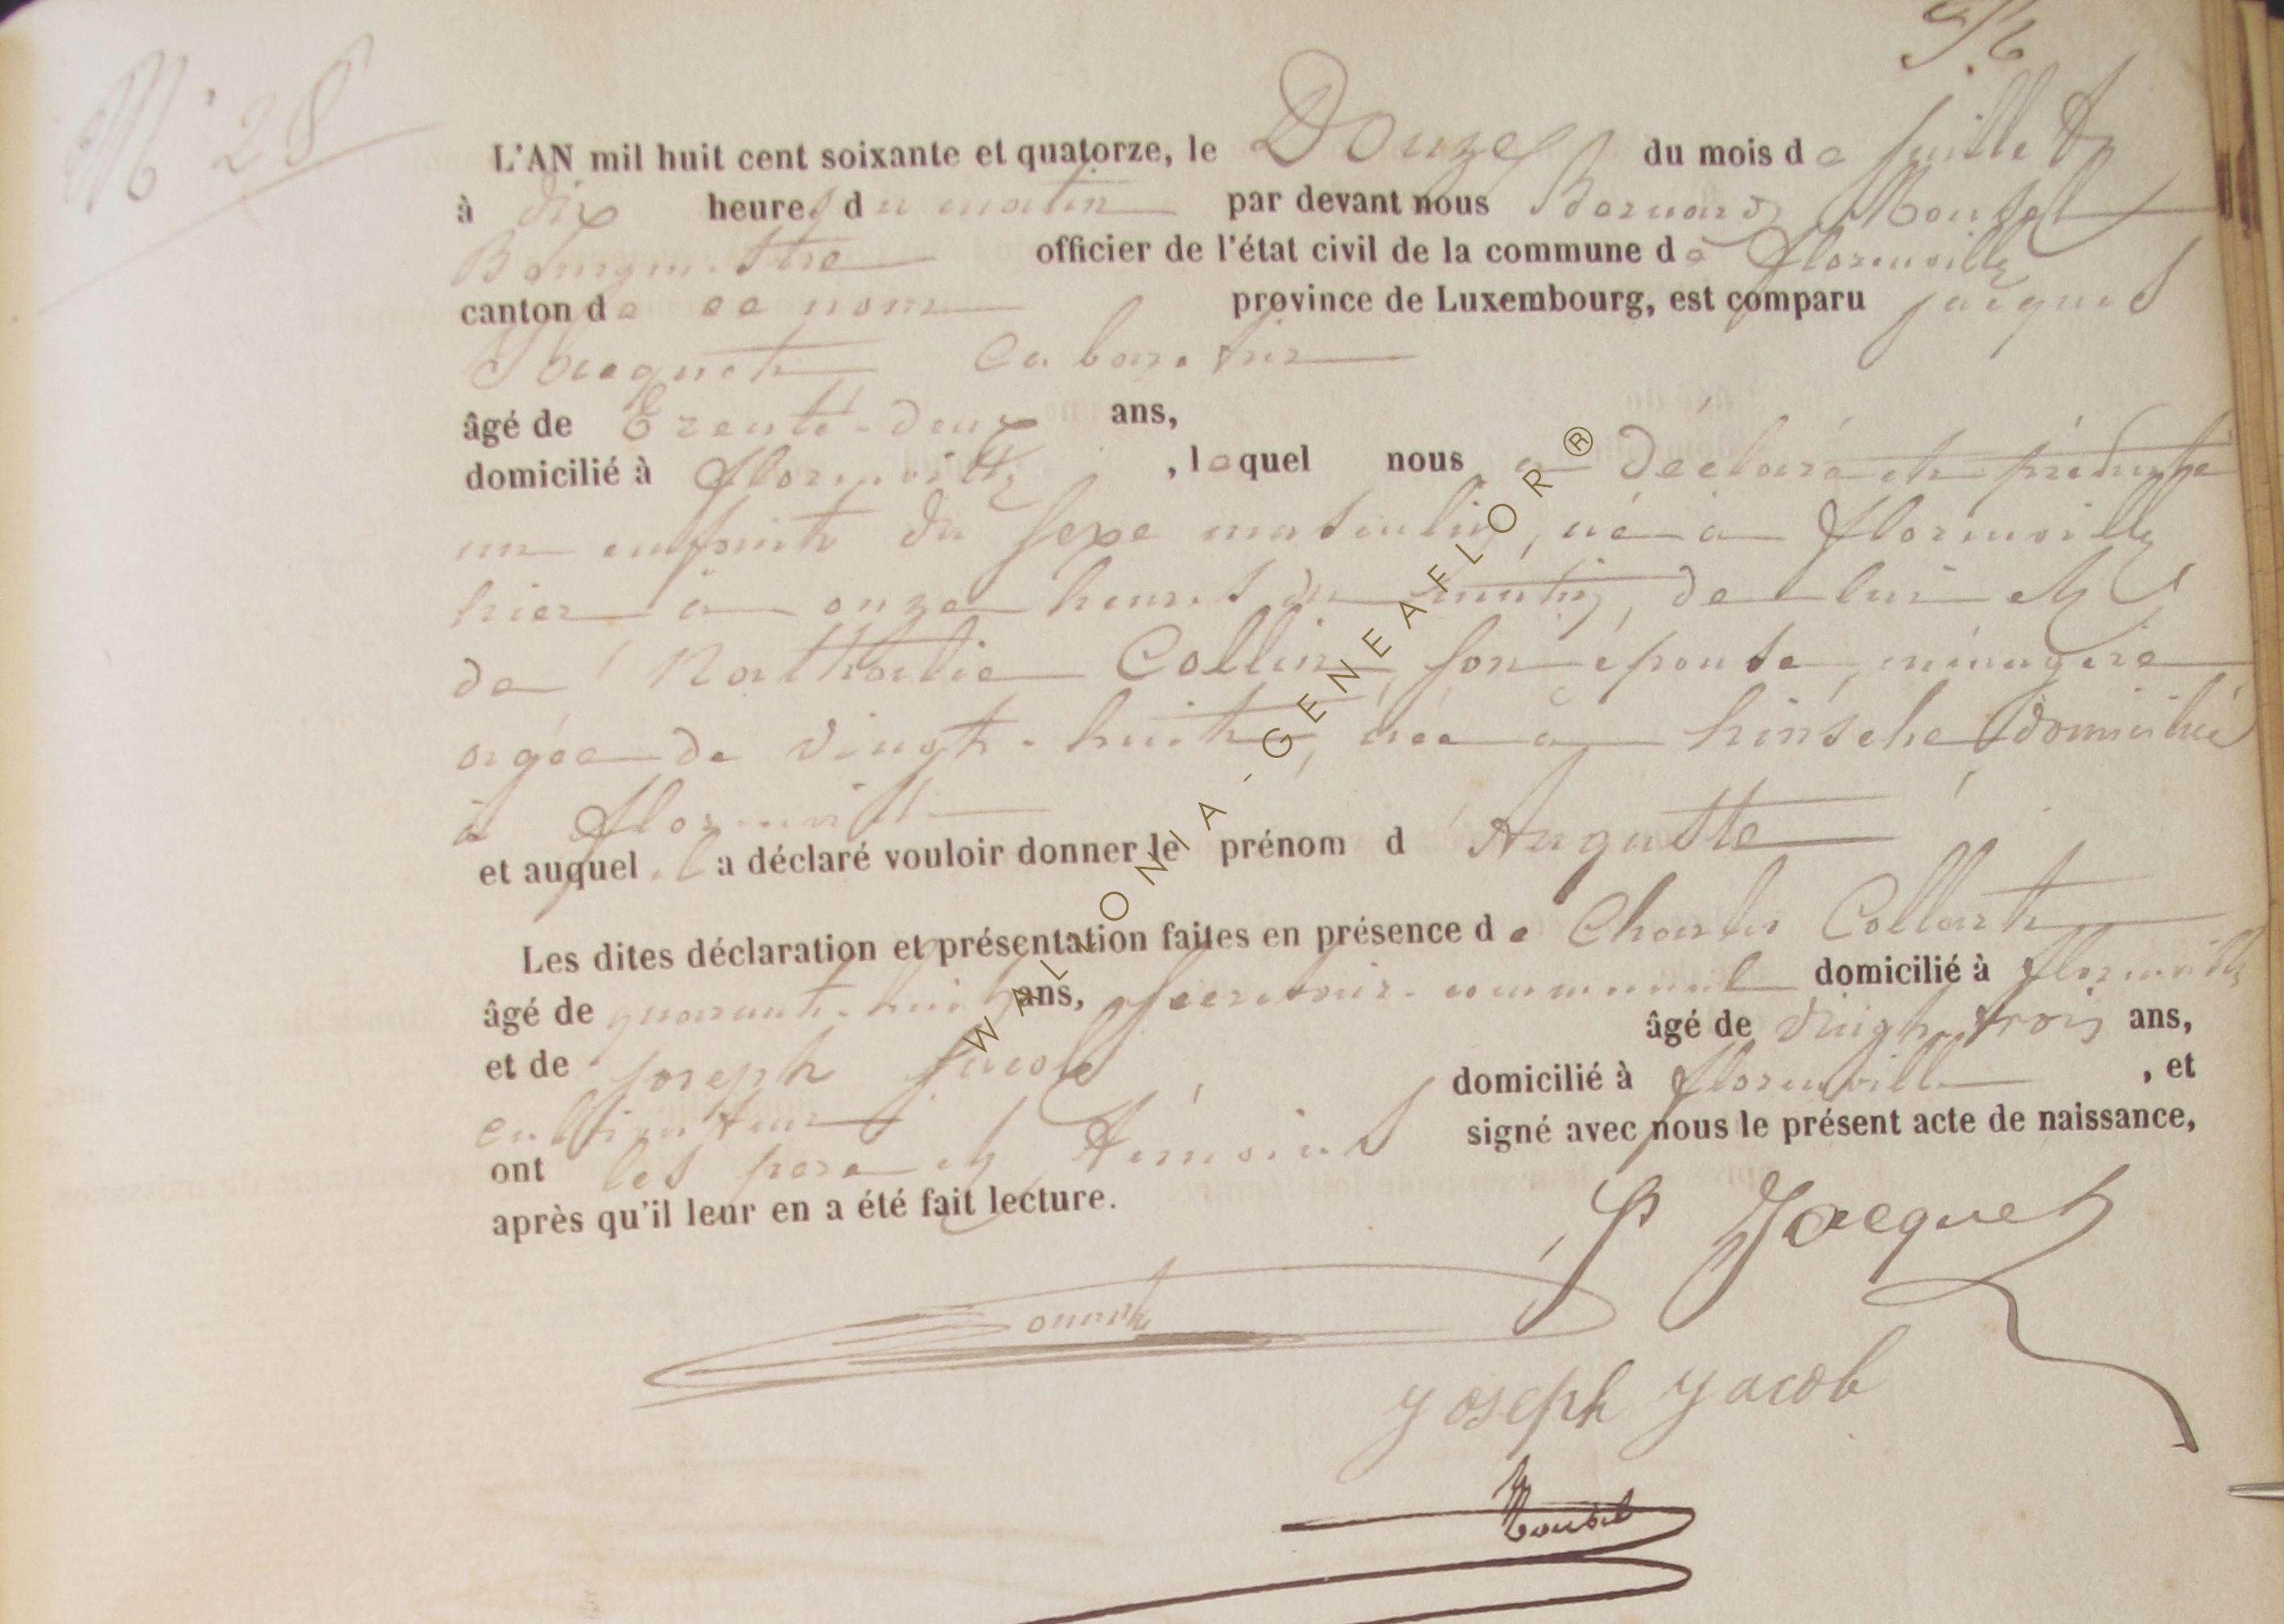 N° 28
L'AN mil huit cent soixante et quatorze, le Douze du mois de juillet
à dix heures du matin par devant nous Bernard Mousel
Bourgmestre officier de l'état civil de la commune de florenville
canton de ce nom province de Luxembourg, est comparu jacques
Jacquet Cabaretier
âgé de Trente-deux ans,
domicilié à florenville , lequel nous a déclaré et présenté
un enfant du sexe masculin, né à florenville
hier à onze heures du matin, de lui et
de Nathalie Collin, son épouse, ménagère
agée de vingt-huit, née à domiciliée
à florenville
et auquel il a déclaré vouloir donner le prénom d Auguste
Les dites déclaration et présentation faites en présence de Charles Collart
âgé de quarante-huit ans, secrétaire communal domicilié à florenville
et de joseph jacob âgé de vingt-trois ans,
cultivateur domicilié à florenville , et
ont les père et témoins signé avec nous le présent acte de naissance,
après qu'il leur en a été fait lecture.
J Jacquet
Joseph Jacob
Mousel
WALLONIA-GENEAFLOR®